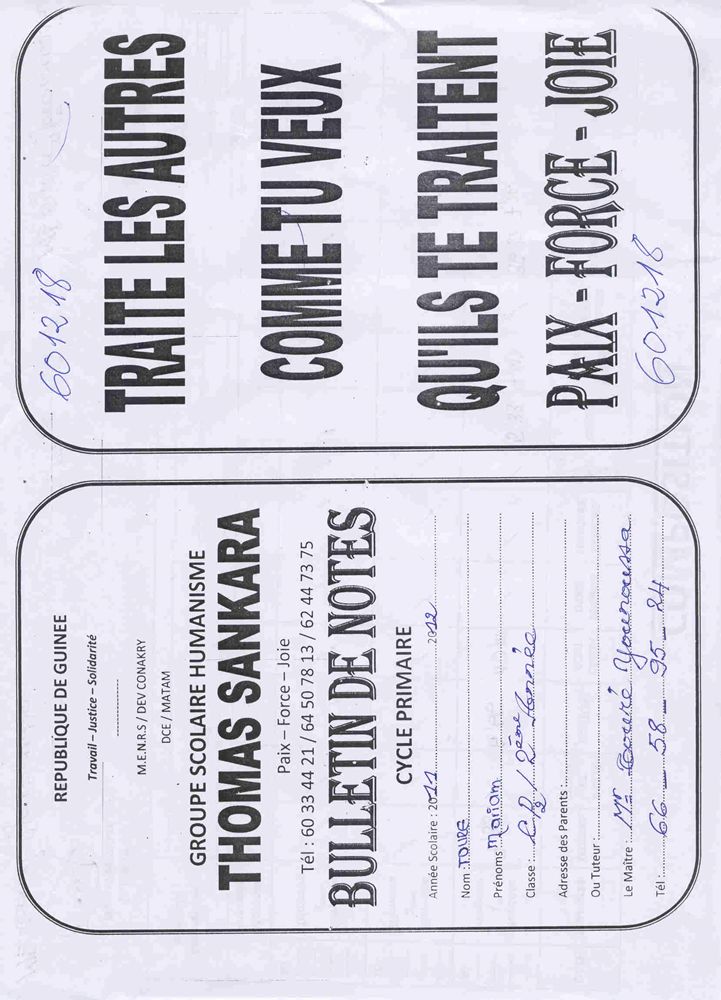 601218
TRAITE LES AUTRES
COMME TU VEUX
QU'ILS TE TRAITENT
PAIX - FORCE - JOIE
601218
REPUBLIQUE DE GUINEE
Travail – Justice – Solidarité
M.E.N.R.S / DEV CONAKRY
DCE / MATAM
GROUPE SCOLAIRE HUMANISME
THOMAS SANKARA
Paix – Force – Joie
Tél : 60 33 44 21 / 64 50 78 13 / 62 44 73 75
BULLETIN DE NOTES
CYCLE PRIMAIRE
Année Scolaire : 2011 2012
Nom : TOURE
Prénoms : Mariam
Classe : 2ème Année
Adresse des Parents :
Ou Tuteur :
Le Maître : Mr Younoussa
Tél : 66 58 95 24